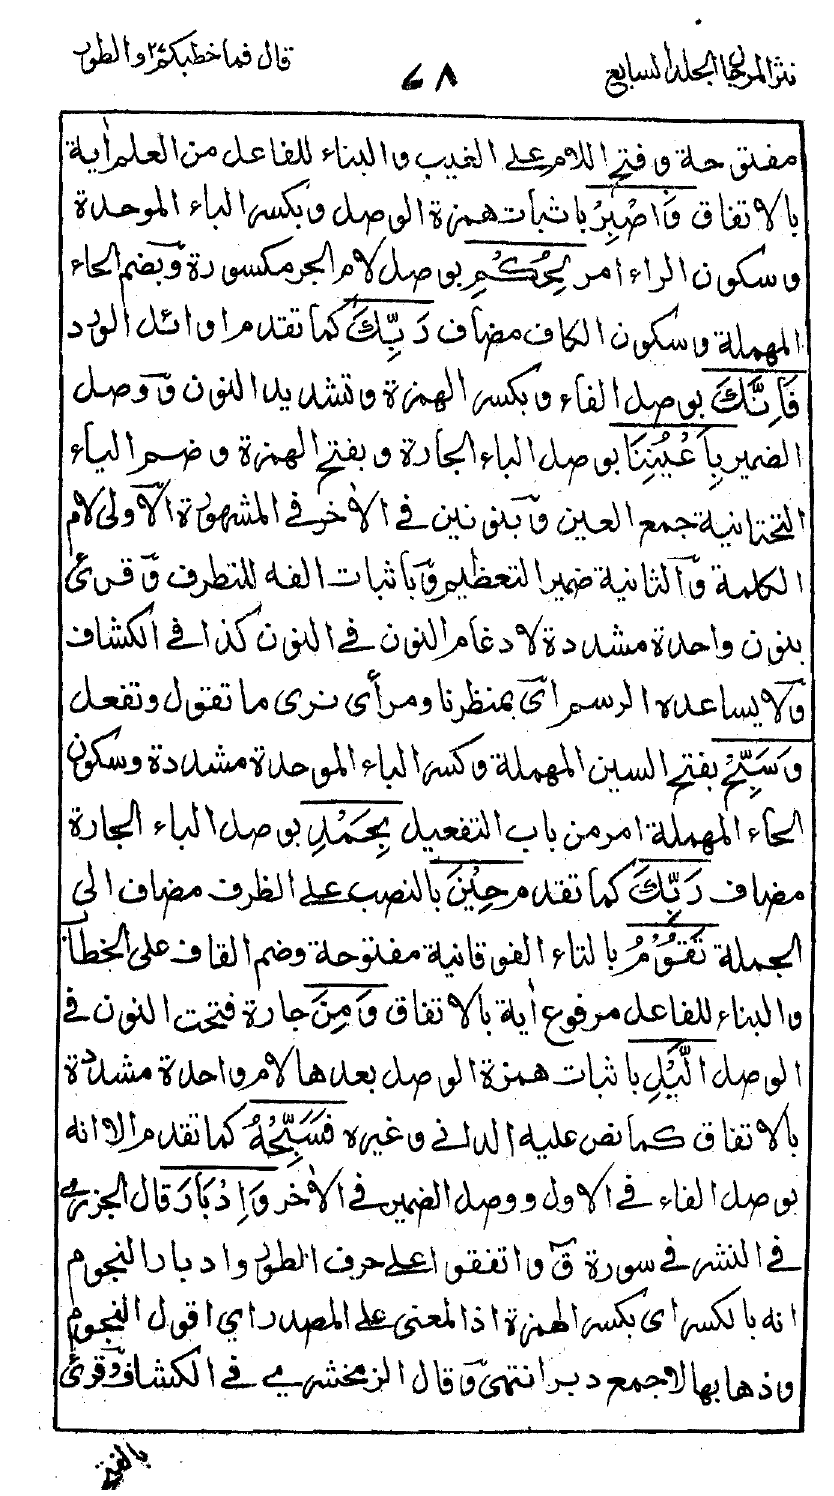 نثر المرجان الجلد السابع
٦٨
قال فما خطبكم ٢٧ والطور
مفتوحة وفتح اللام على الغيب والبناء للفاعل من العلم اٰية
بالاتفاق وَاصْبِرْ باثبات همزة الوصل وبكسر الباء الموحدة
وسكون الراء امر لِحُكْمِ بوصل لام الجر مكسورة وبضم الحاء
المهملة وسكون الكاف مضاف رَبِّكَ كما تقدم اوائل الورد
فَاِنَّكَ بوصل الفاء وبكسر الهمزة وتشديد النون ووصل
الضمير بِاَعْيُنِنَا بوصل الباء الجارة وبفتح الهمزة وضم الياء
التحتانية جمع العين وبنونين في الاٰخر في المشهورة الاولى لام
الكلمة والثانية ضمير التعظيم وباثبات الفه للتطرف وقرئ
بنون واحدة مشددة لادغام النون في النون كذا في الكشاف
ولا يساعده الرسم اى بمنظرنا ومرأى نرى ما تقول وتفعل
وَسَبِّحْ بفتح السين المهملة وكسر الباء الموحدة مشددة وسكون
الحاء المهملة امر من باب التفعيل بِحَمْدِ بوصل الباء الجارة
مضاف رَبِّكَ كما تقدم حِيْنَ بالنصب على الظرف مضاف الى
الجملة تَقُوْمُ بالتاء الفوقانية مفتوحة وضم القاف على الخطاب
والبناء للفاعل مرفوع اٰية بالاتفاق وَمِنَ جارة فتحت النون في
الوصل الَّيْلِ باثبات همزة الوصل بعدها لام واحدة مشددة
بالاتفاق كما نص عليه الداني وغيره فَسَبِّحْهُ كما تقدم الا انه
بوصل الفاء في الاول ووصل الضمير في الاٰخر وَاِدْبَارَ قال الجزري
في النشر في سورة ق واتفقوا على حرف الطور وادبار النجوم
انه بالكسر اى بكسر الهمزة اذ المعنى على المصدر اي افول النجوم
وذهابها لا جمع دبر انتهى وقال الزمخشري في الكشاف وقرئ
بالفتح